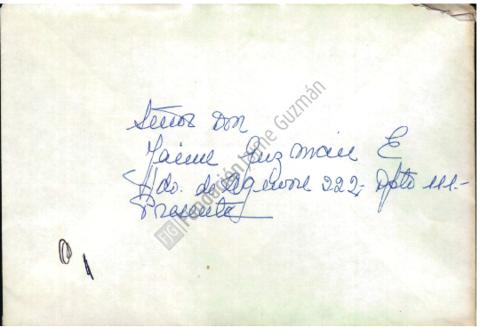 Señor Don
Jaime Guzmán E
Hdo. de Aguirre 222, Dpto 111.-
Presente
FJG Fundación Jaime Guzmán